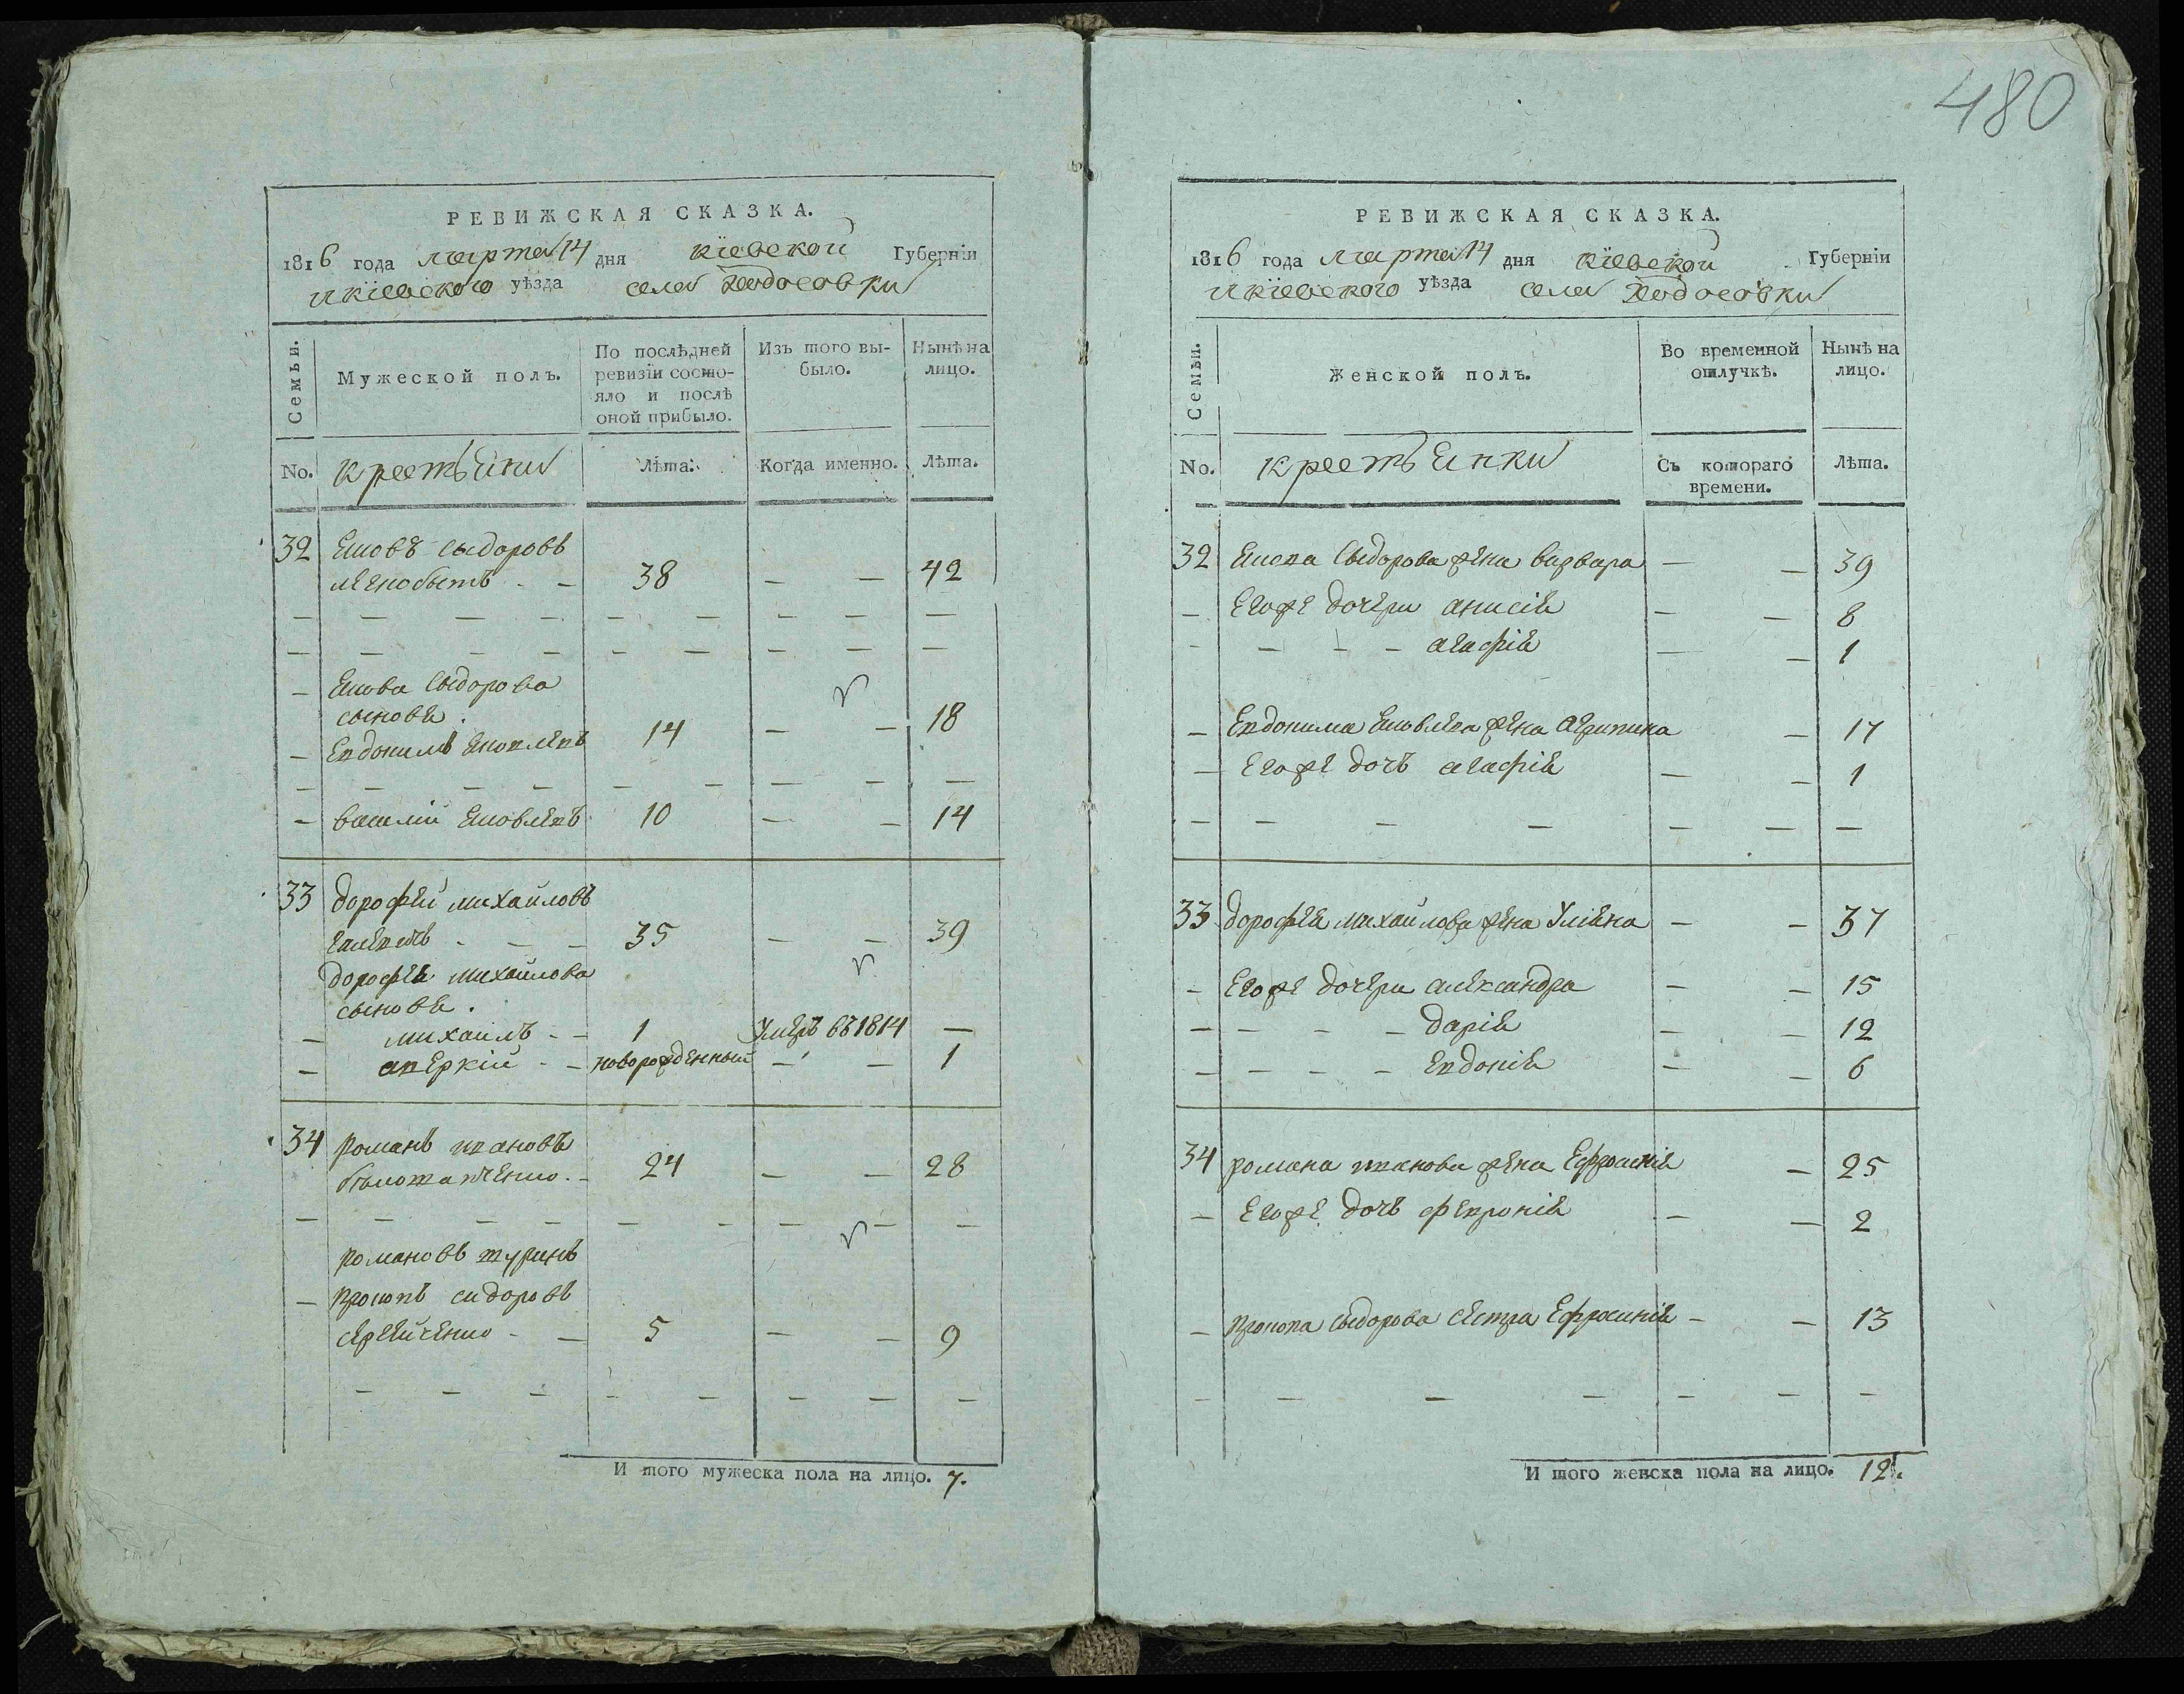 480
РЕВИЖСКАЯ СКАЗКА.
1816 года марта 14 дня кіевской Губерніи
и кіевского уѣзда села Ходосовки
Семьи.
Мужеской полъ.
По послѣдней ревизіи состояло и послѣ оной прибыло.
Изъ того выбыло.
Нынѣ на лицо.
No. крестьяни Лѣта. Когда именно. Лѣта.
32 Яковъ Сыдоровъ
38 — — 42
— Якова Сыдорова
сыновя.
— Евдокимъ Яковлевъ 14 — — 18
— Василій Яковлевъ 10 — — 14
33 дорофей михайловъ
35 — — 39
дорофея михайлова
сыновя.
— михаилъ - - 1 Умеръ въ 1814 —
— аверкій - - новорожденный — — 1
34 романъ ивановъ
24 — — 28
романовъ шуринъ
— прокопъ сидоровъ
сергейченко - — 5 — — 9
И того мужеска пола на лицо. 7.
РЕВИЖСКАЯ СКАЗКА.
1816 года марта 14 дня кіевской Губерніи
и кіевского уѣзда села Ходосовки
Семьи.
Женской полъ.
Во временной отлучкѣ.
Нынѣ на лицо.
No. крестьянки Съ котораго времени. Лѣта.
32 Якова Сыдорова жена варвара — — 39
— Егоже дочери анисія — — 8
- — - - агафія — — 1
— Евдокима Яковлева жена агрипина — 17
— Егоже дочь агафія — — 1
33 дорофея михайлова жена Уліяна — — 37
- Егоже дочери александра — — 15
— — - - дарія — — 12
- — - - Евдокія — — 6
34 романа иванова жена Ефросинія — 25
— Егоже дочь февронія — — 2
— прокопа сыдорова сестра Ефросинія - — 13
И того женска пола на лицо. 12.